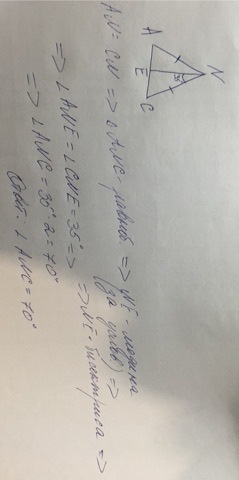 A
N
E
C
35°
AN = CN => △ANC - равноб. => NE - медиана
(за условв) =>
=> NE - биссектриса =>
=> ∠ANE = ∠CNE = 35° =>
=> ∠ANC = 35°·2 = 70°
Ответ: ∠ANC = 70°